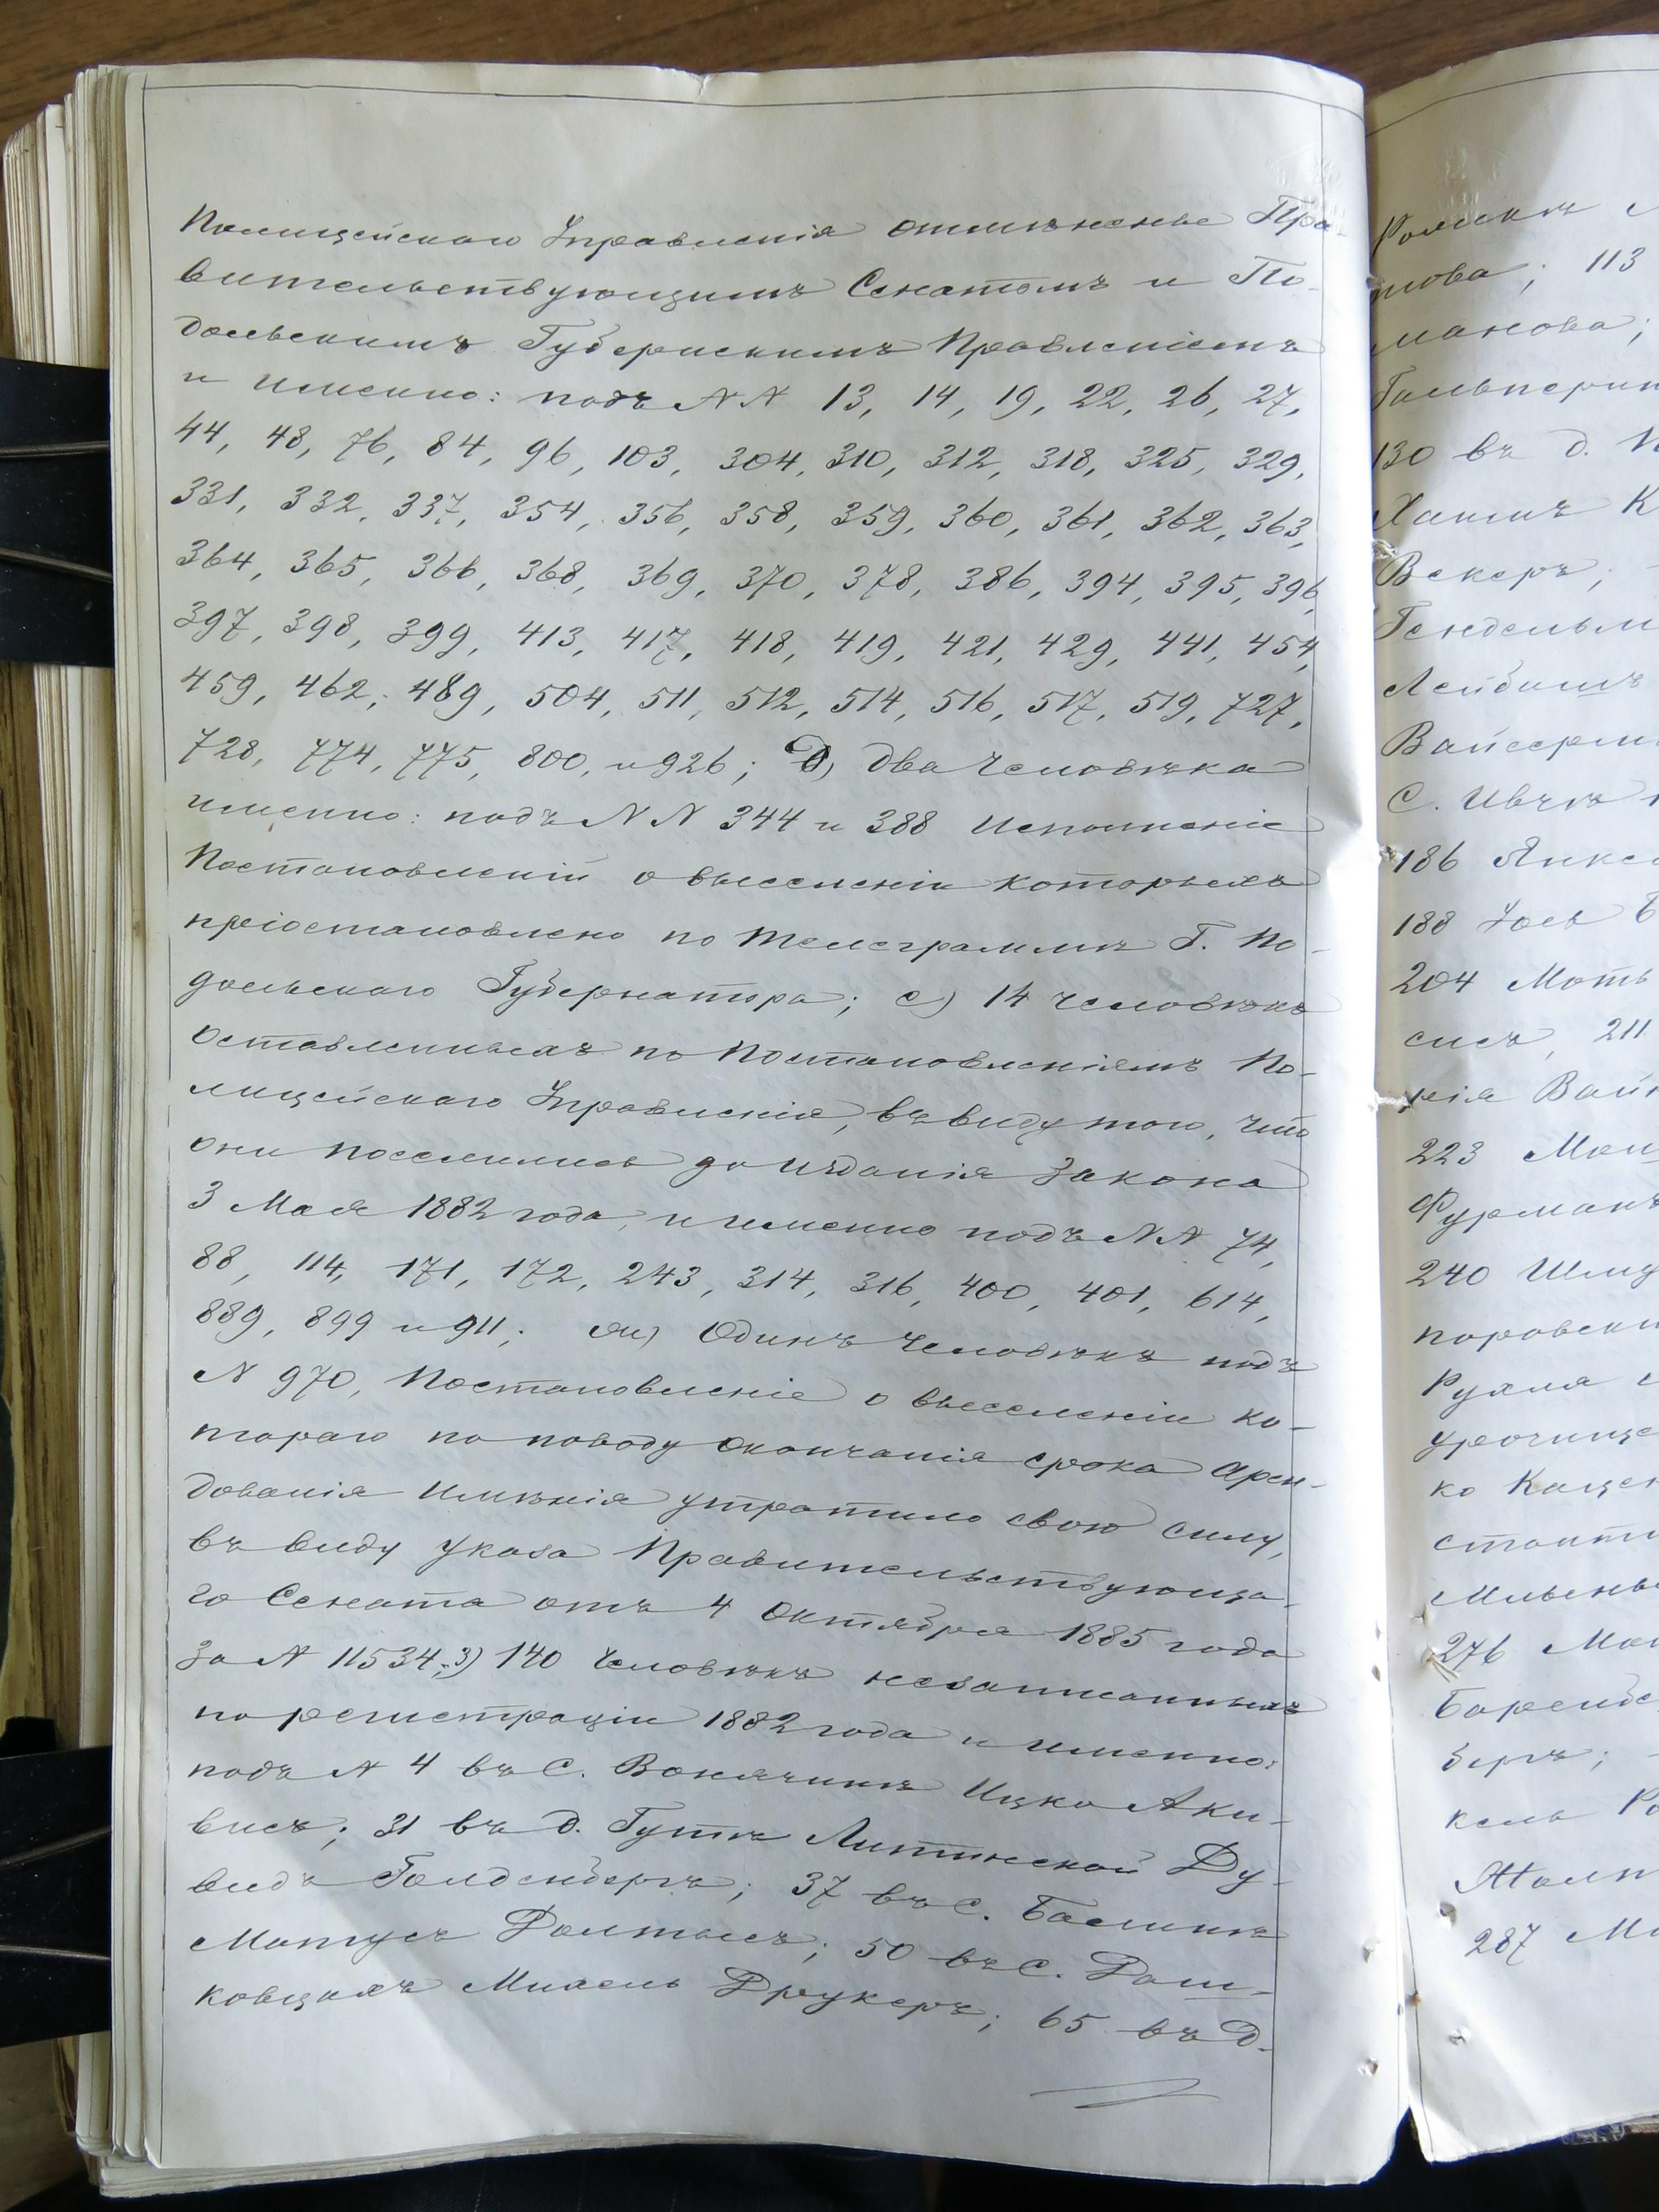 Полицейскаго Управленія отмѣнены Пра-
вительствующимъ Сенатомъ и По-
дольскимъ Губернскимъ Правленіемъ
и именно: подъ №№ 13, 14, 19, 22, 26, 27,
44, 48, 76, 84, 96, 103, 304, 310, 312, 318, 325, 329,
331, 332, 337, 354, 356, 358, 359, 360, 361, 362, 363,
364, 365, 366, 368, 369, 370, 378, 386, 394, 395, 396,
397, 398, 399, 413, 417, 418, 419, 421, 429, 441, 454,
459, 462, 489, 504, 511, 512, 514, 516, 517, 519, 727,
728, 774, 775, 800, и 926; д) два человѣка
именно: подъ №№ 344 и 388 исполненіе
Постановленій о выселеніи которыхъ
пріостановлено по телеграммѣ Г. По-
дольскаго Губернатора; е) 14 человѣкъ
оставленныхъ по постановленіямъ По-
лицейскаго Управленія, въ виду того, что
они поселились до изданія закона
3 Мая 1882 года, и именно подъ №№ 74,
88, 114, 171, 172, 243, 314, 316, 400, 401, 614,
889, 899 и 911; ж) Одинъ человѣкъ подъ
№ 970, Постановленіе о выселеніи ко-
тораго по поводу окончанія срока арен-
дованія имѣнія утратило свою силу,
въ виду указа Правительствующа-
го Сената отъ 4 Октября 1885 года
за № 11534; з) 140 человѣкъ незаписанныхъ
по регистраціи 1882 года и именно:
подъ № 4 въ с. Вонячинѣ Ицко Аки-
висъ; 31 въ д. Гутѣ Литинской Ду-
видъ Голденбергъ; 37 въ с. Баглинѣ
Мотусь Долтысъ; 50 въ с. Даш-
ковцахъ Михель Друкеръ; 65 въ д.
113
130 въ д.
Хаимъ К
Векеръ;
Гендельм
Лейбишъ
С. Ивчѣ
186 Янке
188
204 Моть
211
223
Фурманъ
240 Шму
Рухля
276
бергъ;
287